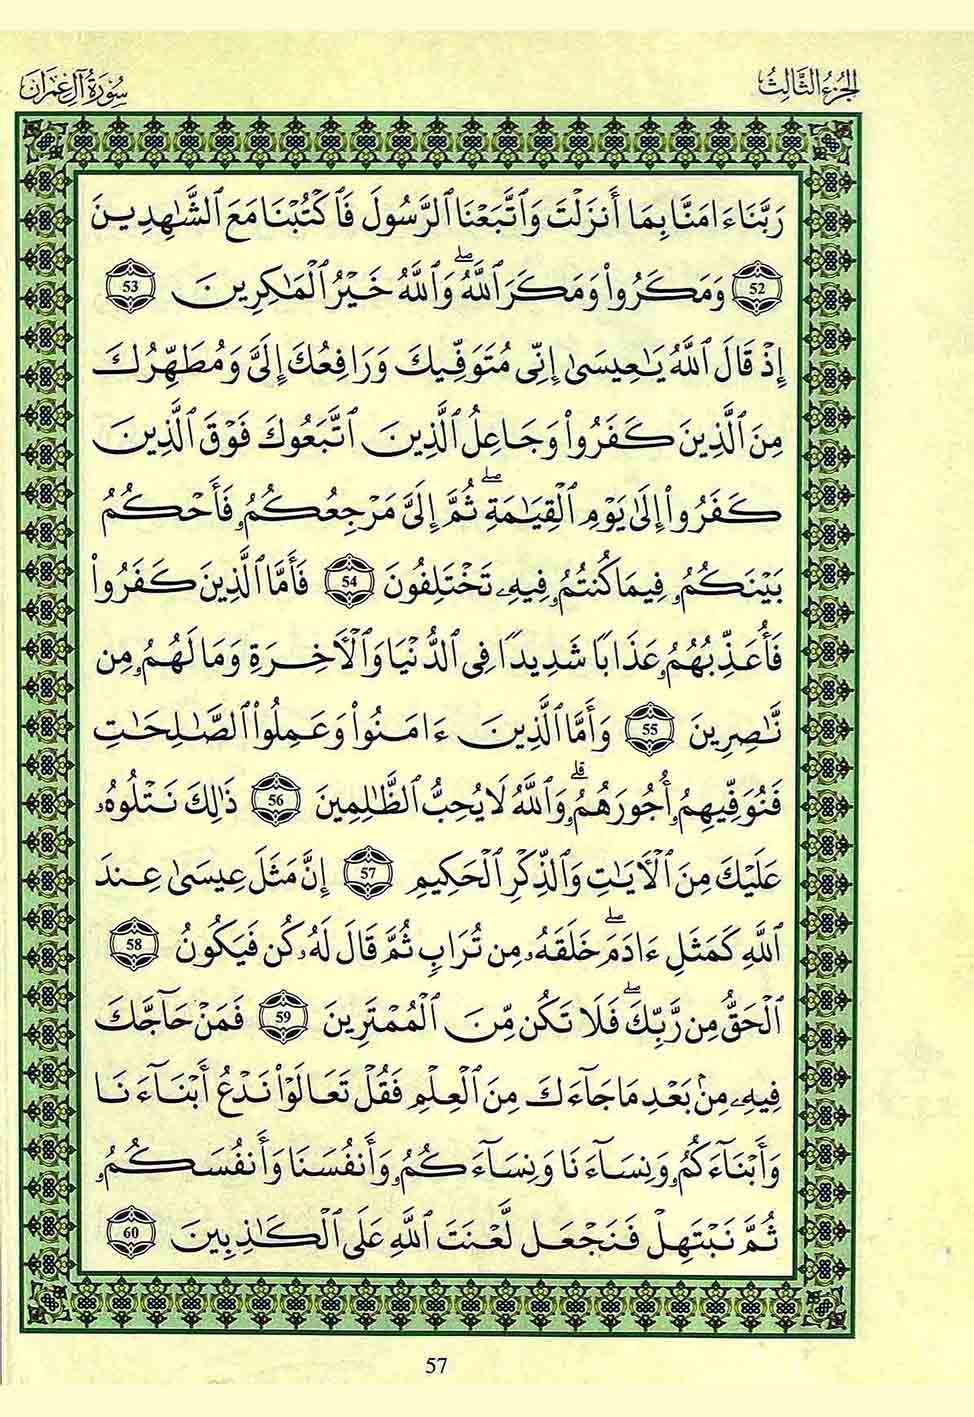 الجزء الثالث
سورة آل عمران
رَبَّنَا ءَامَنَّا بِمَا أَنزَلْتَ وَاَتَّبَعْنَا اَلرَّسُولَ فَاَكْتُبْنَا مَعَ اَلشَّٰهِدِينَ
52 وَمَكَرُواْ وَمَكَرَ اَللَّهُ صلے وَاَللَّهُ خَيْرُ اُلْمَٰكِرِينَ 53
إِذْ قَالَ اَللَّهُ يَٰعِيسَىٰ إِنِّى مُتَوَفِّيكَ وَرَافِعُكَ إِلَىَّ وَمُطَهِّرُكَ
مِنَ اَلَّذِينَ كَفَرُواْ وَجَاعِلُ اُلَّذِينَ اَتَّبَعُوكَ فَوْقَ اَلَّذِينَ
كَفَرُواْ إِلَىٰ يَوْمِ اِلْقِيَٰمَةِ صلے ثُمَّ إِلَىَّ مَرْجِعُكُمُۥ فَأَحْكُمُ
بَيْنَكُمُۥ فِيمَا كُنتُمُۥ فِيهِۦ تَخْتَلِفُونَ 54 فَأَمَّا اَلَّذِينَ كَفَرُواْ
فَأُعَذِّبُهُمُۥ عَذَابًا شَدِيدًا فِى اِلدُّنْيَا وَاَلْأَخِرَةِ وَمَا لَهُمُۥ مِن
نَّٰصِرِينَ 55 وَأَمَّا اَلَّذِينَ ءَامَنُواْ وَعَمِلُواْ اُلصَّٰلِحَٰتِ
فَنُوَفِّيهِمُۥ أُجُورَهُمُۥ قلے وَاَللَّهُ لَا يُحِبُّ اُلظَّٰلِمِينَ 56 ذَٰلِكَ نَتْلُوهُۥ
عَلَيْكَ مِنَ اَلْأَيَٰتِ وَاَلذِّكْرِ اِلْحَكِيمِ 57 إِنَّ مَثَلَ عِيسَىٰ عِندَ
اَللَّهِ كَمَثَلِ ءَادَمَ صلے خَلَقَهُۥ مِن تُرَابٍ ثُمَّ قَالَ لَهُۥ كُن فَيَكُونُ 58
اُلْحَقُّ مِن رَّبِّكَ صلے فَلَا تَكُن مِّنَ اَلْمُمْتَرِينَ 59 فَمَنْ حَآجَّكَ
فِيهِۦ مِنۢ بَعْدِ مَا جَآءَكَ مِنَ اَلْعِلْمِ فَقُلْ تَعَالَوْاْ نَدْعُ أَبْنَآءَنَا
وَأَبْنَآءَكُمُۥ وَنِسَآءَنَا وَنِسَآءَكُمُۥ وَأَنفُسَنَا وَأَنفُسَكُمُۥ
ثُمَّ نَبْتَهِلْ فَنَجْعَل لَّعْنَتَ اَللَّهِ عَلَى اَلْكَٰذِبِينَ 60
57